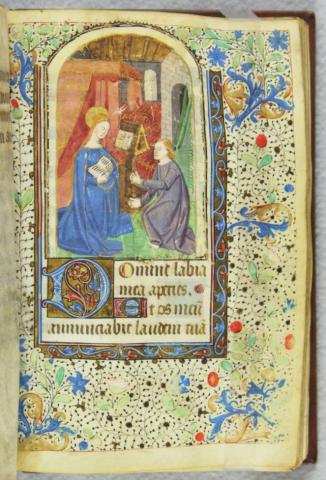 Domine labia
mea aperies.
Et os meū
annunciabit laudem tuā